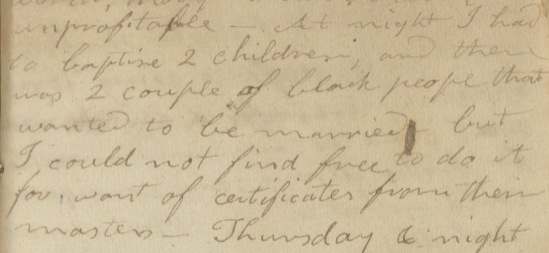 unprofitable — At night I had
to baptise 2 children, and then
was 2 couple of black peope that
wanted to be married but
I could not find free to do it
for want of certificates from their
masters — Thursday & night